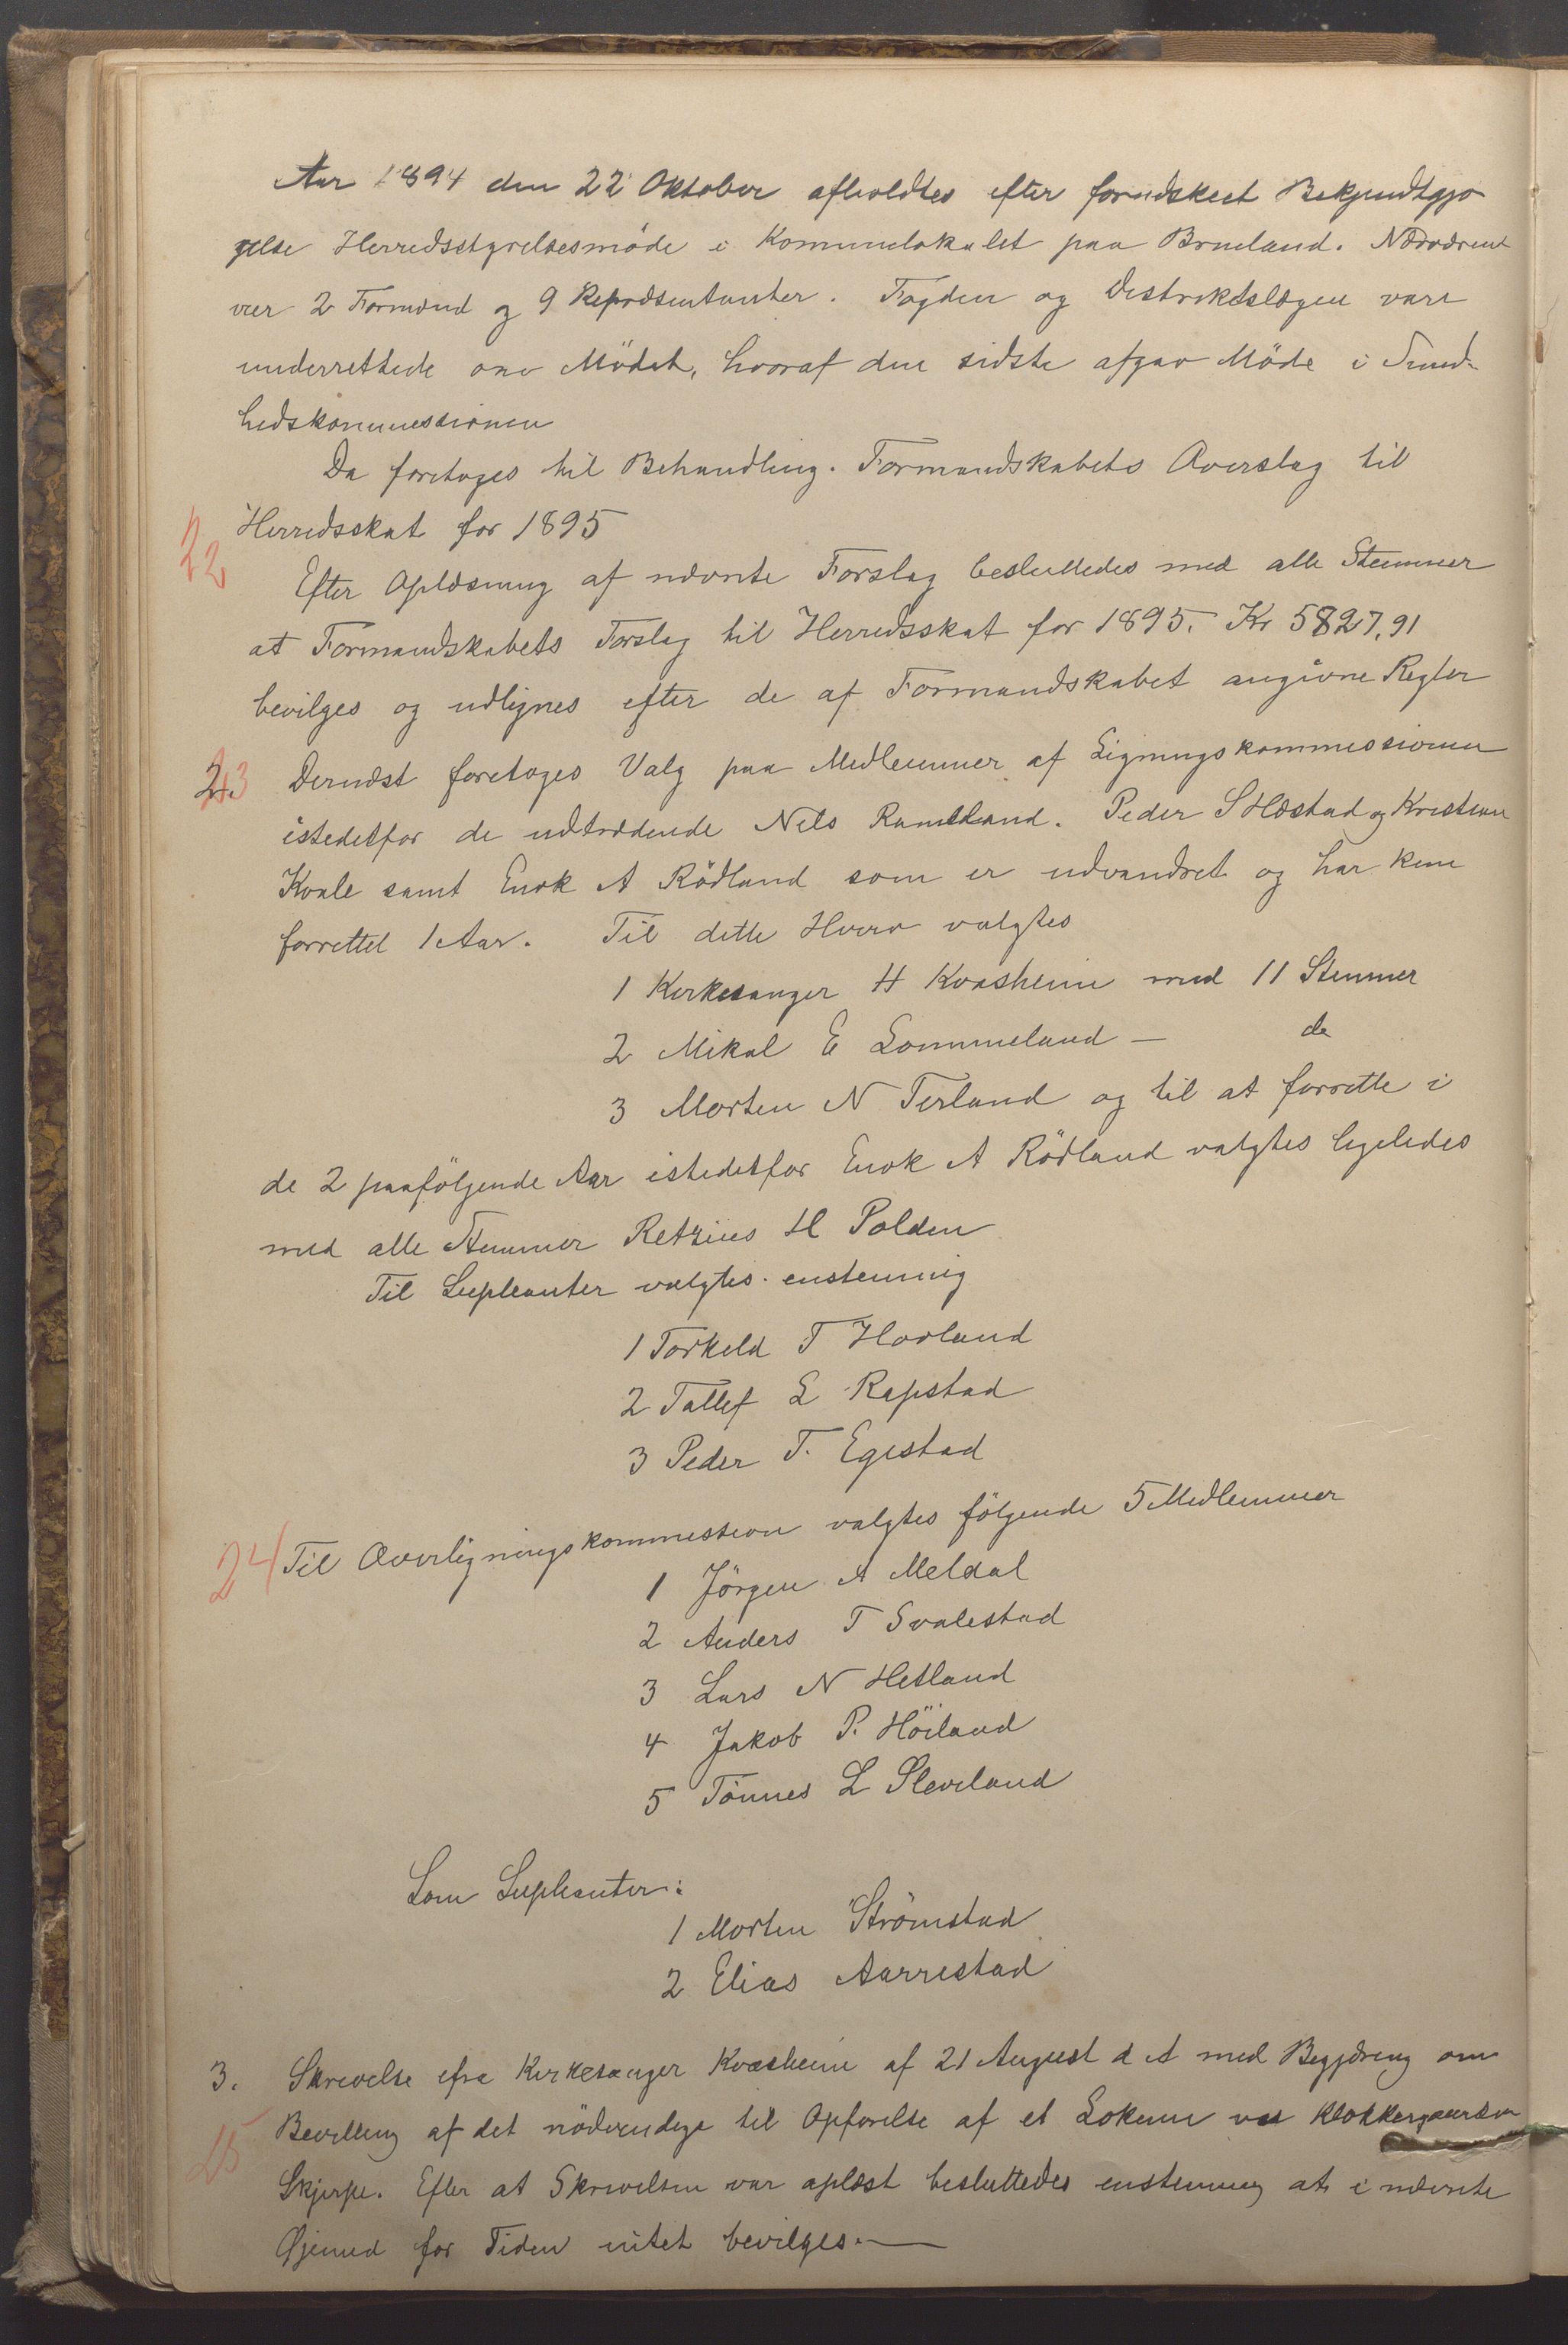 Aar 1894 den 22 Oktober afholdtes efter forudskeet Bekjendtgjø
relse Herredsstyrelsesmöde i Kommunelokalet paa Brueland. Nærværend
var 2 Formænd og 9 Repræsentanter. Fogden og Destriktslægen vare
underrettede om Mödet, hvoraf den sidste afgav Möde i Sund-
hedskommessionen
Da foretoges til Behandling. Formandskabets Overslag til
22 Herredsskat for 1895
Efter Oplæsning af nævnte Forslag besluttedes med alle Stemmer
at Formandskabets Forslag til Herredsskat for 1895. Kr 5827,91
bevilges og udlignes efter de af Formandskabet angivne Regler
2. 23 Dernæst foretoges Valg paa Medlemmer af Ligningskommessionen
istedetfor de udtrædende Nils Ramsland. Peder S Hæstad og Kristian
Kvale samt Enok A Rödland som er udvandret og har kun
forrettet 1 Aar. Til dette Hverv valgtes
1 Kirkesanger H Kvasheim med 11 Stemmer
2 Mikal E Lommeland — do
3 Morten N Terland og til at forrette i
de 2 paafölgende Aar istedetfor Enok A Rödland valgtes ligeledes
med alle Stemmer Retzius H Polden
Til Supleanter valgtes enstemmig
1 Torkeld T Hovland
2 Tallef L Rapstad
3 Peder T. Egestad
24 Til Overligningskommession valgtes fölgende 5 Medlemmer
1 Jörgen A Meldal
2 Anders T Svalestad
3 Lars N Hetland
4 Jakob P. Höiland
5 Tönnes L Sleveland
Som Supleanter:
1 Morten Strömstad
2 Elias Aarrestad
3. Skrivelse fra Kirkesanger Kvasheim af 21 August d A med Begjæring om
25 Bevilling af det nödvendige til Opförelse af et Lokum ved Klokkergaarden
Skjerpe. Efter at Skrivelsen var oplæst besluttedes enstemmig at i nævnte
Øjemed for Tiden intet bevilges.—